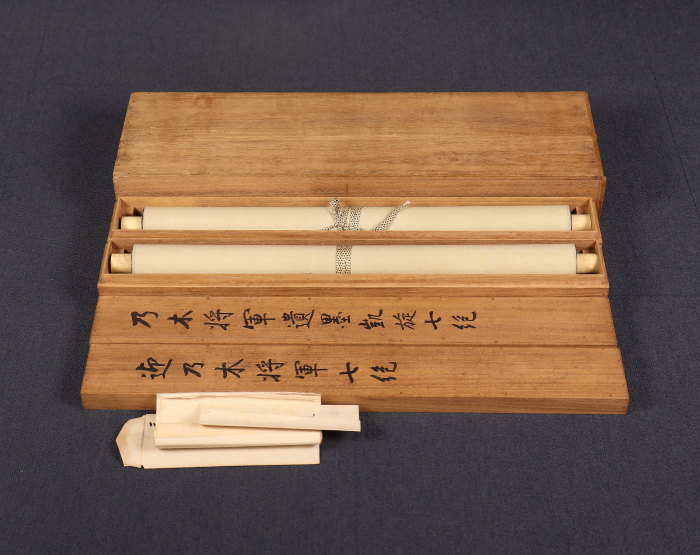 乃木将軍遺墨凱旋七絶
迎乃木将軍七絶